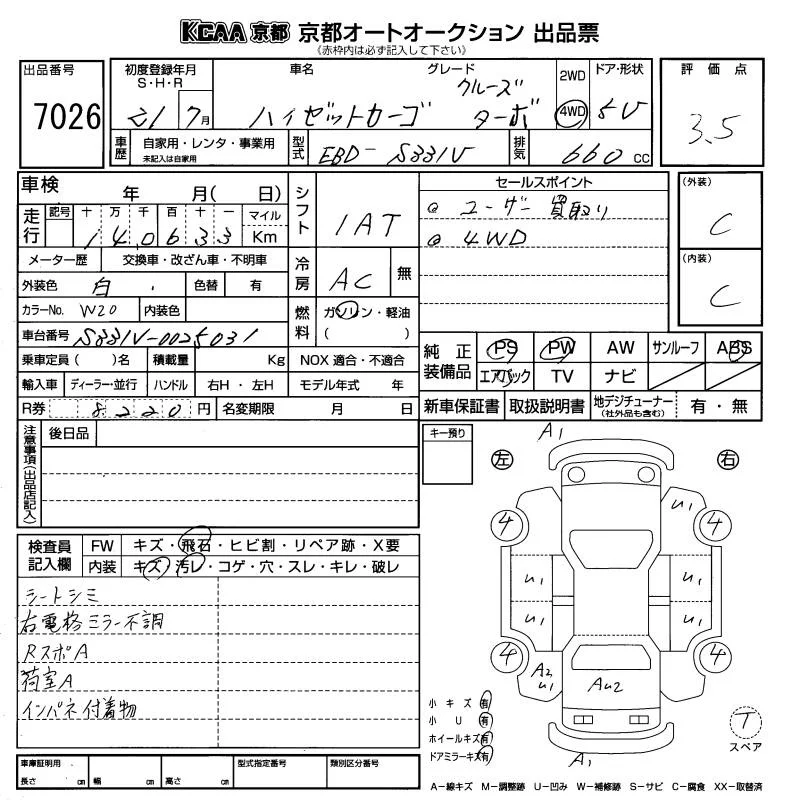 KCAA 京都 京都オートオークション 出品票
《赤枠内は必ず記入して下さい》
出品番号
7026
初度登録年月
S・H・R
21 7月
車名
ハイゼットカーゴ
グレード
クルーズ
ターボ
2WD
4WD
ドア・形状
5V
評価点
3.5
車歴
自家用・レンタ・事業用
未記入は自家用
型式
EBD-S331V
排気
660 CC
車検 年 月( 日)
走行
記号 十 万 千 百 十 一 マイル
1 4 0 6 3 3 Km
シフト
IAT
セールスポイント
◎ ユーザー買取り
◎ 4WD
(外装)
C
(内装)
C
メーター歴 交換車・改ざん車・不明車
外装色 白 色替 有
冷房
AC 無
カラーNo. W20 内装色
燃料
ガソリン・軽油
( )
車台番号 S331V-0025031
乗車定員 ( )名 積載量 Kg NOX 適合・不適合
輸入車 ディーラー・並行 ハンドル 右H・左H モデル年式 年
R券 8220円 名変期限 月 日
純正装備品
PS PW AW サンルーフ ABS
エアバック TV ナビ
新車保証書 取扱説明書 地デジチューナー (社外品も含む) 有・無
注意事項(出品店記入)
後日品
キー預り
A1
左 右
4 4
U1
U1 U1
U1 U1
4 4
A2
U1
AU2
A1
検査員記入欄
FW キズ・飛石・ヒビ割・リペア跡・X要
内装 キズ・汚レ・コゲ・穴・スレ・キレ・破レ
シートシミ
右電格ミラー不調
RスポA
荷室A
インパネ付着物
小キズ 有
小U 有
ホイールキズ 有
ドアミラーキズ 有
T
スペア
車庫証明用
長さ cm 幅 cm 高さ cm
型式指定番号
類別区分番号
A-線キズ M-調整跡 U-凹み W-補修跡 S-サビ C-腐食 XX-取替済